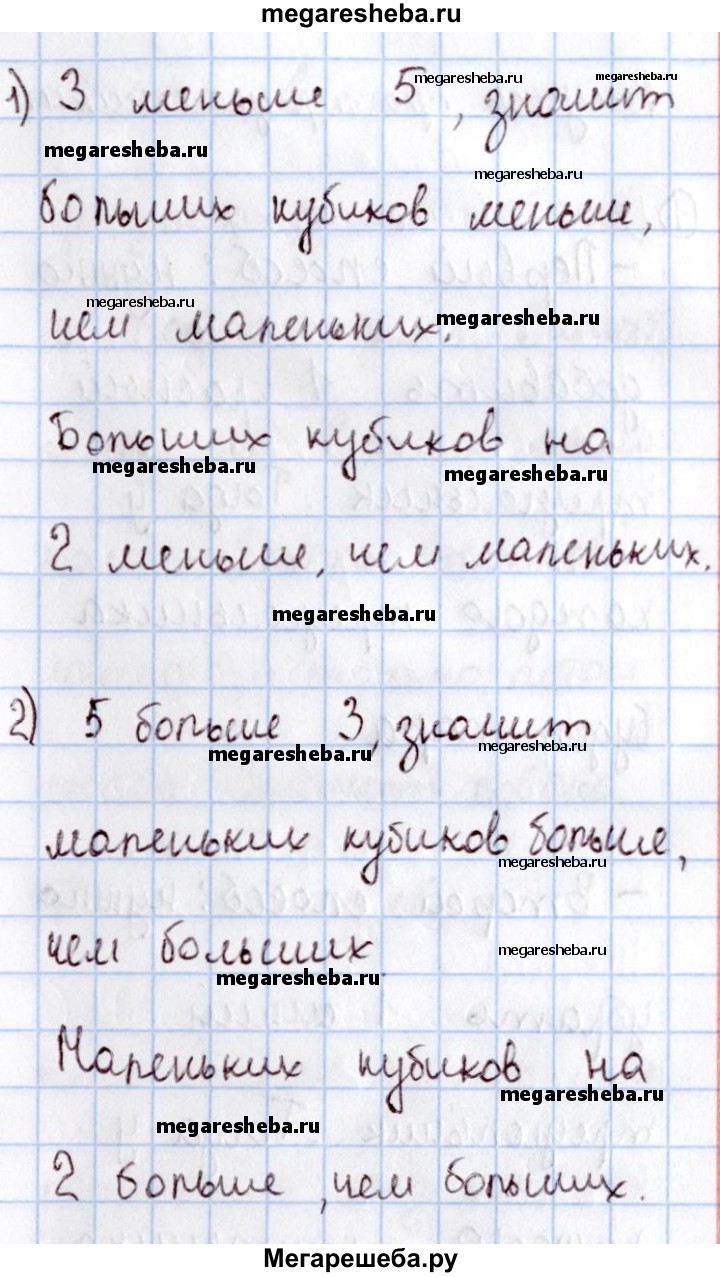 megaresheba.ru
1) 3 меньше 5, значит
megaresheba.ru
megaresheba.ru
megaresheba.ru
megaresheba.ru
больших кубиков меньше,
megaresheba.ru
чем маленьких.
megaresheba.ru
Больших кубиков на
megaresheba.ru
megaresheba.ru
2 меньше, чем маленьких.
megaresheba.ru
2) 5 больше 3, значит
megaresheba.ru
megaresheba.ru
маленьких кубиков больше,
megaresheba.ru
чем больших
megaresheba.ru
megaresheba.ru
Маленьких кубиков на
megaresheba.ru
megaresheba.ru
2 больше, чем больших.
Мегарешеба.ру